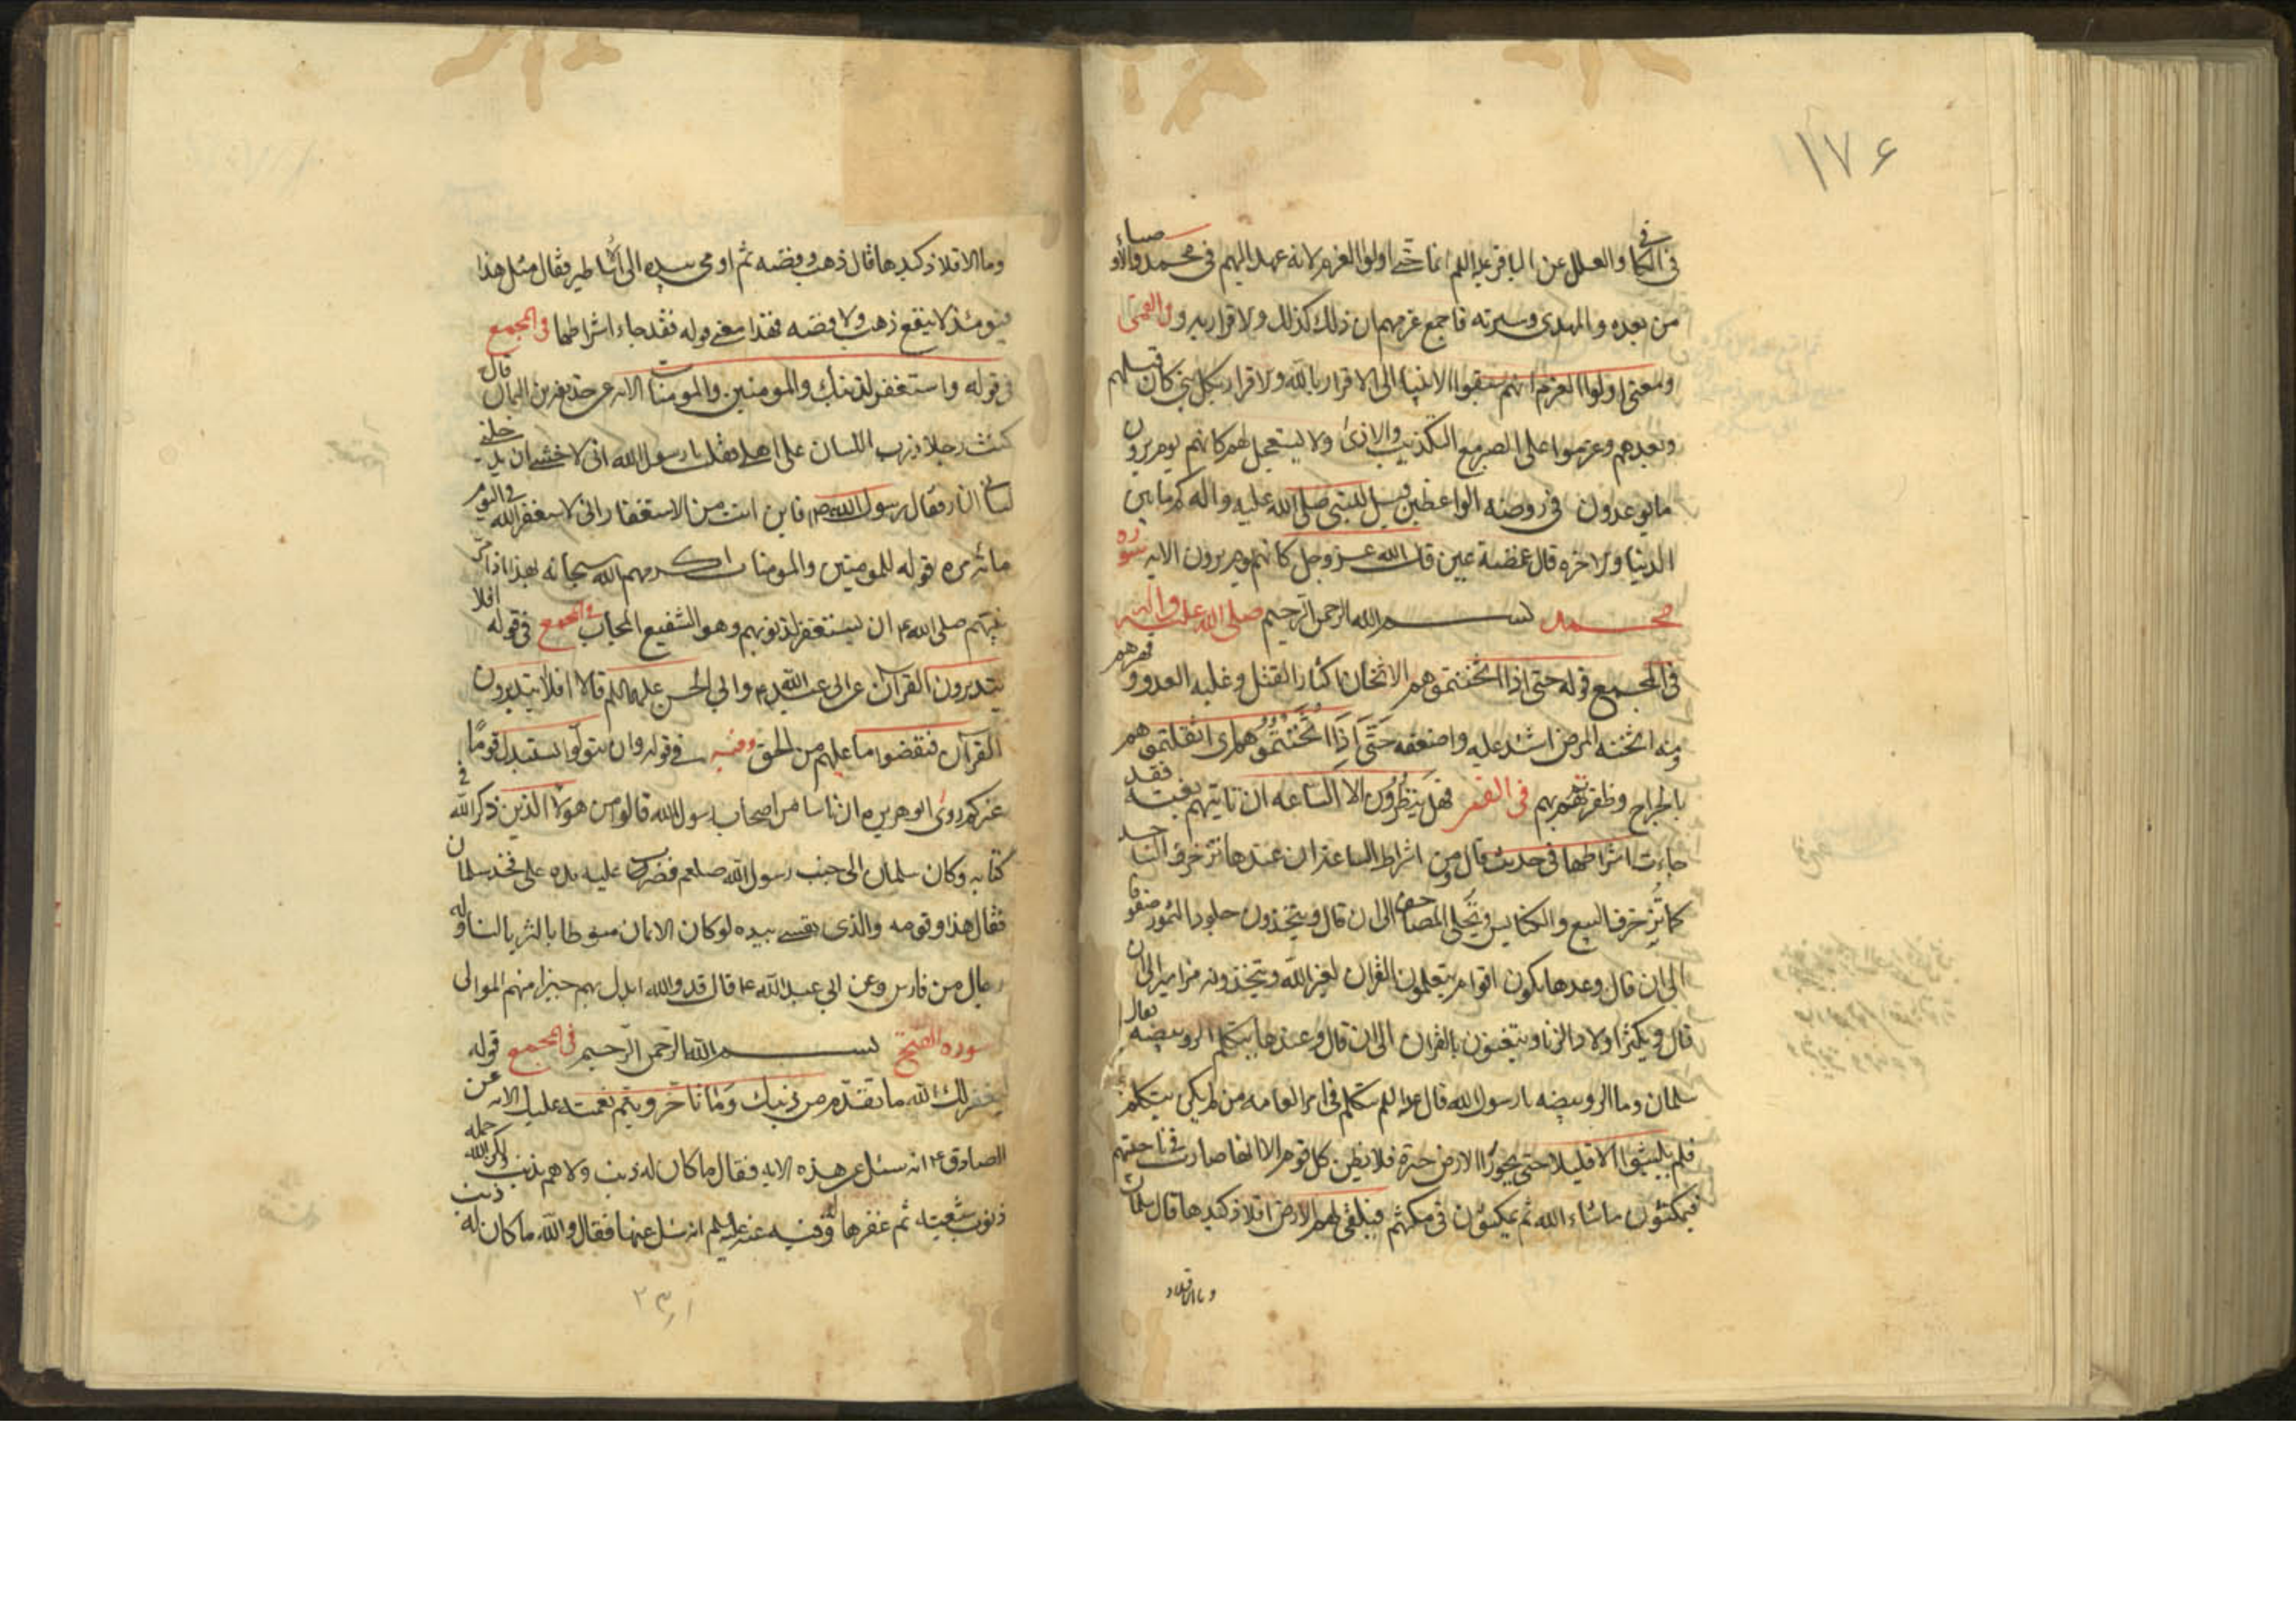 ١٧۶
في الكافي والعلل عن الباقر عليه السلم انما سمي اولوا العزم لانه عهد اليهم في محمد والاوصياء
من بعده والمهدي وسيرته فاجمع عزمهم ان ذلك كذلك والاقرار به وفي القمي
ومعنى اولوا العزم انهم سبقوا الانبياء الى الاقرار بالله والاقرار بكل نبي كان قبلهم
وبعدهم وعزموا على الصبر مع التكذيب والاذى ولا تستعجل لهم كانهم يوم يرون
ما يوعدون في روضه الواعظين قيل للنبي صلى الله عليه واله كم ما بين
الدنيا والاخره قال غمضة عين قال الله عز وجل كانهم يوم يرون الايه سوره
محمد بسم الله الرحمن الرحيم صلى الله عليه واله
في المجمع قوله حتى اذا اثخنتموهم الاثخان اكثار القتل وغلبه العدو وقهرهم
ومنه اثخنه المرض اشتد عليه واضعفه حَتَّى اِذَا اَثْخَنْتُمُوهُم اى اثقلتموهم
بالجراح وظفرتم بهم في القمي فهل ينظرون الا الساعه ان تاتيهم بغته فقد
جاءت اشراطها في حديث قال ومن اشراط الساعة ان عندها تزخرف المساجد
كما تزخرف البيع والكنايس وتحلى المصاحف الى ان قال ويتخذون جلود النمور صفوفا
الى ان قال وعدها يكون اقوام يتعلمون القران لغير الله ويتخذونه مزامير الى ان
قال ويكثر اولاد الزنا ويتغنون بالقران الى ان قال وعندها يتكلم الرويبضه فقال
سلمان وما الرويبضه يا رسول الله قال عليه السلم يتكلم في امر العامه من لم يكن يتكلم
فلم يلبثوا الا قليلا حتى تخور الارض خورة فلا يظن كل قوم الا انها خارت في ناحيتهم
فيمكثون ما شاء الله ثم يمكثون في مكثهم فتلقى لهم الارض افلاذ كبدها قال سلمان
وما الافلاذ
وما الافلاذ كبدها قال ذهب وفضه ثم اومى بيده الى الاساطير فقال مثل هذا
فيومئذ لا ينفع ذهب ولا فضه فهذا معنى قوله فقد جاء اشراطها في المجمع
في قوله واستغفر لذنبك وللمومنين والمومنات الايه عن حذيفة بن اليمان قال
كنت رجلا ذرب اللسان على اهلي فقلت يا رسول الله اني لاخشى ان يدخلني
لساني النار فقال رسول الله ص فاين انت من الاستغفار اني لاستغفر الله في اليوم
مائه مره قوله للمومنين والمومنات اكرمهم الله سبحانه بهذا اذ امر
نبيهم صلى الله ع ان يستغفر لذنوبهم وهو الشفيع المجاب في المجمع في قوله افلا
يتدبرون القرآن عن ابي عبد الله ع وابي الحسن عليهما السلم قالا افلا يتدبرون
القرآن فيقضوا ما عليهم من الحق وفيه في قوله وان يتولوا يستبدل قومًا
غيركم روى ابو هريره ان ناسا من اصحاب رسول الله قالوا من هولاء الذين ذكر الله في
كتابه وكان سلمان الى جنب رسول الله صلعم فضرب عليه يده على فخذ سلمان
فقال هذا وقومه والذي نفسي بيده لو كان الايمان منوطا بالثريا لتناوله
رجال من فارس وعن ابي عبد الله ع قال قد والله ابدل بهم خيرا منهم الموالي
سوره الفتح بسم الله الرحمن الرحيم في المجمع قوله
ليغفر لك الله ما تقدم من ذنبك وما تأخر ويتم نعمته عليك الايه عن
الصادق ع انه سئل عن هذه الايه فقال ما كان له ذنب ولا هم بذنب ولكن الله حمله
ذنوب شيعته ثم غفرها له وفيه عنه عليه السلم انه سئل عنها فقال والله ما كان له ذنب